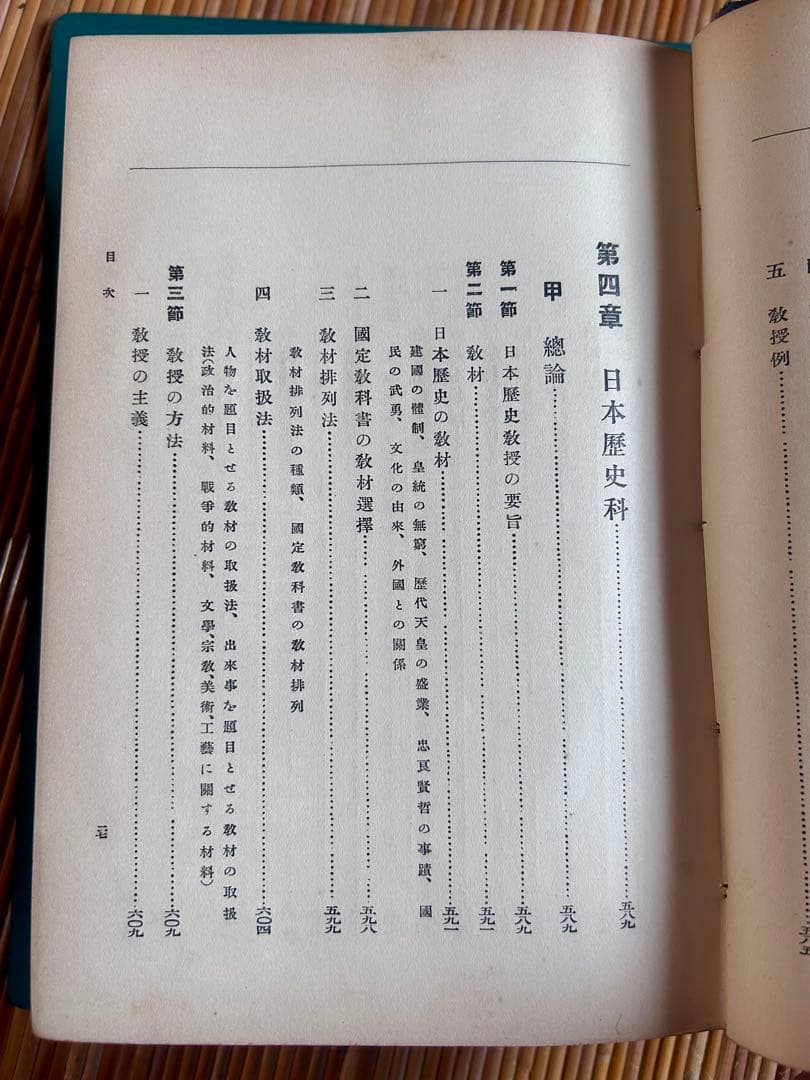 五 敎授例
第四章 日本歷史科……五八九
甲 總論……五八九
第一節 日本歷史敎授の要旨……五八九
第二節 敎材……五九一
一 日本歷史の敎材……五九一
建國の體制、皇統の無窮、歷代天皇の盛業、忠良賢哲の事蹟、國
民の武勇、文化の由來、外國との關係
二 國定敎科書の敎材選擇……五九八
三 敎材排列法……五九九
敎材排列法の種類、國定敎科書の敎材排列
四 敎材取扱法……六〇四
人物を題目とせる敎材の取扱法、出來事を題目とせる敎材の取扱
法(政治的材料、戰爭的材料、文學、宗敎、美術、工藝に關する材料)
第三節 敎授の方法……六〇九
一 敎授の主義……六〇九
目次